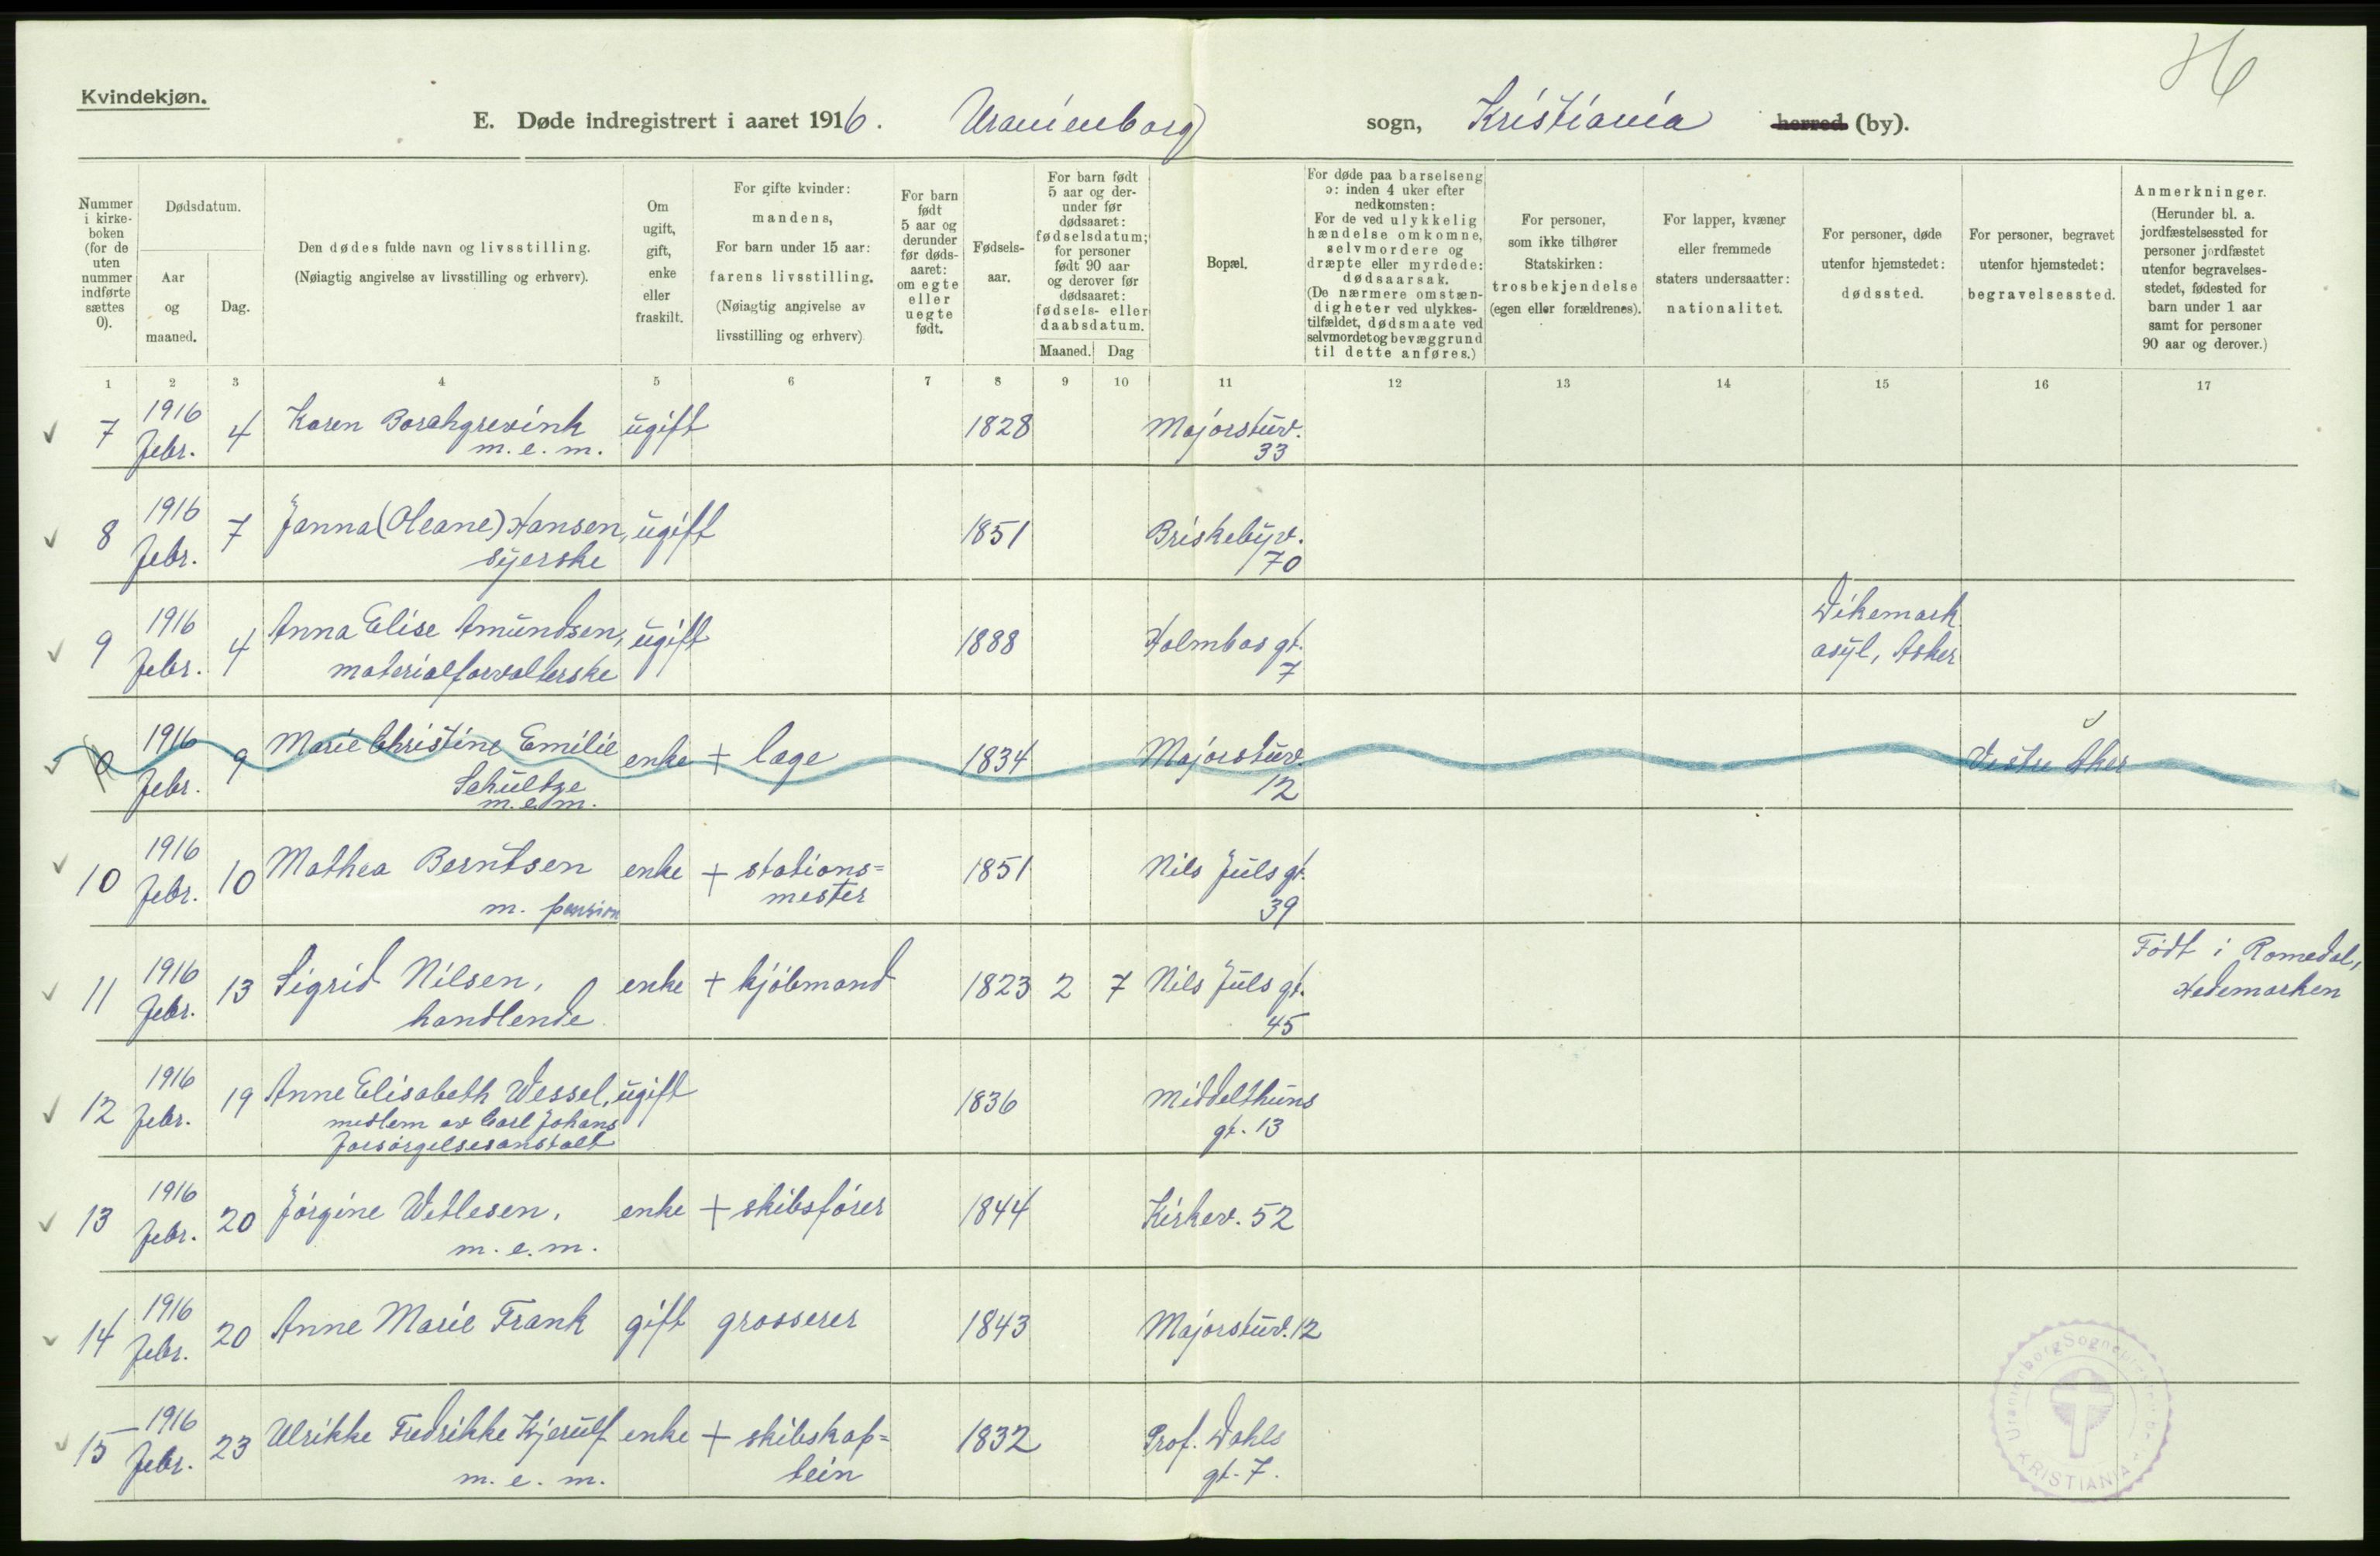 H6
Kvindekjøn.
E. Døde indregistrert i aaret 1916. Uranienborg sogn, Kristiania herred (by).
Nummer i kirke-boken (for de uten nummer indførte sættes 0).
Dødsdatum.
Aar og maaned.
Dag.
Den dødes fulde navn og livsstilling.
(Nøiagtig angivelse av livsstilling og erhverv).
Om ugift, gift, enke eller fraskilt.
For gifte kvinder: mandens,
For barn under 15 aar: farens livsstilling.
(Nøiagtig angivelse av livsstilling og erhverv)
For barn født 5 aar og derunder før døds-aaret: om egte eller uegte født.
Fødsels-aar.
For barn født 5 aar og der-under før dødsaaret: fødselsdatum; for personer født 90 aar og derover før dødsaaret: fødsels- eller daabsdatum.
Maaned. Dag
Bopæl.
For døde paa barselseng ɔ: inden 4 uker efter nedkomsten:
For de ved ulykkelig hændelse omkomne, selvmordere og dræpte eller myrdede: dødsaarsak.
(De nærmere omstæn-digheter ved ulykkes-tilfældet, dødsmaate ved selvmordet og bevæggrund til dette anføres.)
For personer, som ikke tilhører Statskirken: trosbekjendelse (egen eller forældrenes).
For lapper, kvæner eller fremmede staters undersaatter: nationalitet.
For personer, døde utenfor hjemstedet: dødssted.
For personer, begravet utenfor hjemstedet: begravelsessted.
Anmerkninger.
(Herunder bl. a. jordfæstelsessted for personer jordfæstet utenfor begravelses-stedet, fødested for barn under 1 aar samt for personer 90 aar og derover.)
1 2 3 4 5 6 7 8 9 10 11 12 13 14 15 16 17
7 1916 Febr. 4 Karen Borchgrevink ugift 1828 Majorstuv.
m. e. m. 33
8 1916 Febr. 7 Janna (Oleane) Hansen, ugift 1851 Briskebyv.
syerske 70
9 1916 Febr. 4 Anna Elise Amundsen, ugift 1888 Holmboes gt. Dikemark
materialforvalterske 7 asyl, Asker
0 1916 Febr. 9 Marie Christine Emilie enke + læge 1834 Majorstuv. Vestre Aker
Schultze 12
m. e. m.
10 1916 Febr. 10 Mathea Berntsen enke + stations= 1851 Nils Juls gt.
m. pension mester 39
11 1916 Febr. 13 Sigrid Nilsen, enke + kjøbmand 1823 2 7 Nils Juls gt. Født i Romedal,
handlende 45 Hedemarken
12 1916 Febr. 19 Anne Elisabeth Wessel, ugift 1836 Middelthuns
medlem av Carl Johans gt. 13
Forsørgelsesanstalt
13 1916 Febr. 20 Jørgine Wetlesen, enke + skibsfører 1844 Kirkev. 52
m. e. m.
14 1916 Febr. 20 Anne Marie Frank gift grosserer 1843 Majorstuv. 12
15 1916 Febr. 23 Ulrikke Fredrikke Kjerulf enke + skibskap= 1832 Prof. Dahls
m. e. m. tein gt. 7.
KRISTIANIA